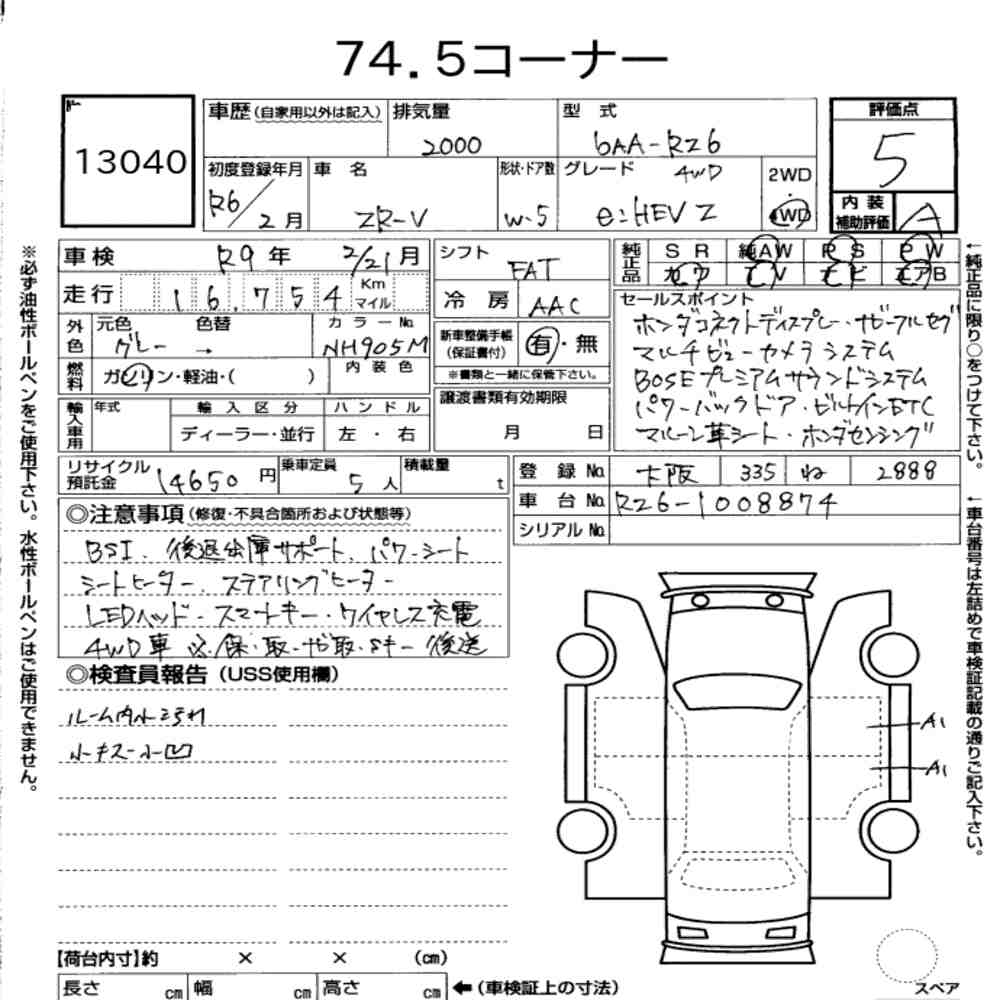 74.5コーナー
13040
車歴 (自家用以外は記入) 排気量 2000 型式 6AA-RZ6
評価点 5
内装補助評価 A
初度登録年月 R6/2月 車名 ZR-V 形状・ドア数 W-5 グレード 4WD e:HEV Z 2WD 4WD
車検 R9年 2/21月 シフト FAT
純正品 SR 純AW PS PW
カワ TV ナビ エアB
走行 16,754 Km マイル 冷房 AAC
セールスポイント
外色 元色 グレー → 色替 カラーNo. NH905M
新車整備手帳 (保証書付) 有・無
※書類と一緒に保管下さい。
燃料 ガソリン・軽油・( ) 内装色
ホンダコネクトディスプレー・サブールセグ
マルチビューカメラシステム
BOSEプレミアムサウンドシステム
パワーバックドア・ビルトインETC
マルーン革シート・ホンダセンシング
輸入車用 年式 輸入区分 ディーラー・並行 ハンドル 左・右
譲渡書類有効期限 月 日
リサイクル預託金 14650円 乗車定員 5人 積載量 t
登録No. 大阪 335 ね 2888
車台No. RZ6-1008874
シリアルNo.
◎注意事項 (修復・不具合箇所および状態等)
BSI. 後退出庫サポート. パワーシート
シートヒーター. ステアリングヒーター
LEDヘッド・スマートキー・ワイヤレス充電
4WD車 ※保・取・ナビ取・Sキー 後送
◎検査員報告 (USS使用欄)
ルーム内小汚れ
小キズ小凹
A1
A1
【荷台内寸】約 × × (cm)
長さ cm 幅 cm 高さ cm ←(車検証上の寸法)
スペア
※必ず油性ボールペンをご使用下さい。水性ボールペンはご使用できません。
←純正品に限り○をつけて下さい。
←車台番号は左詰めで車検証記載の通りご記入下さい。